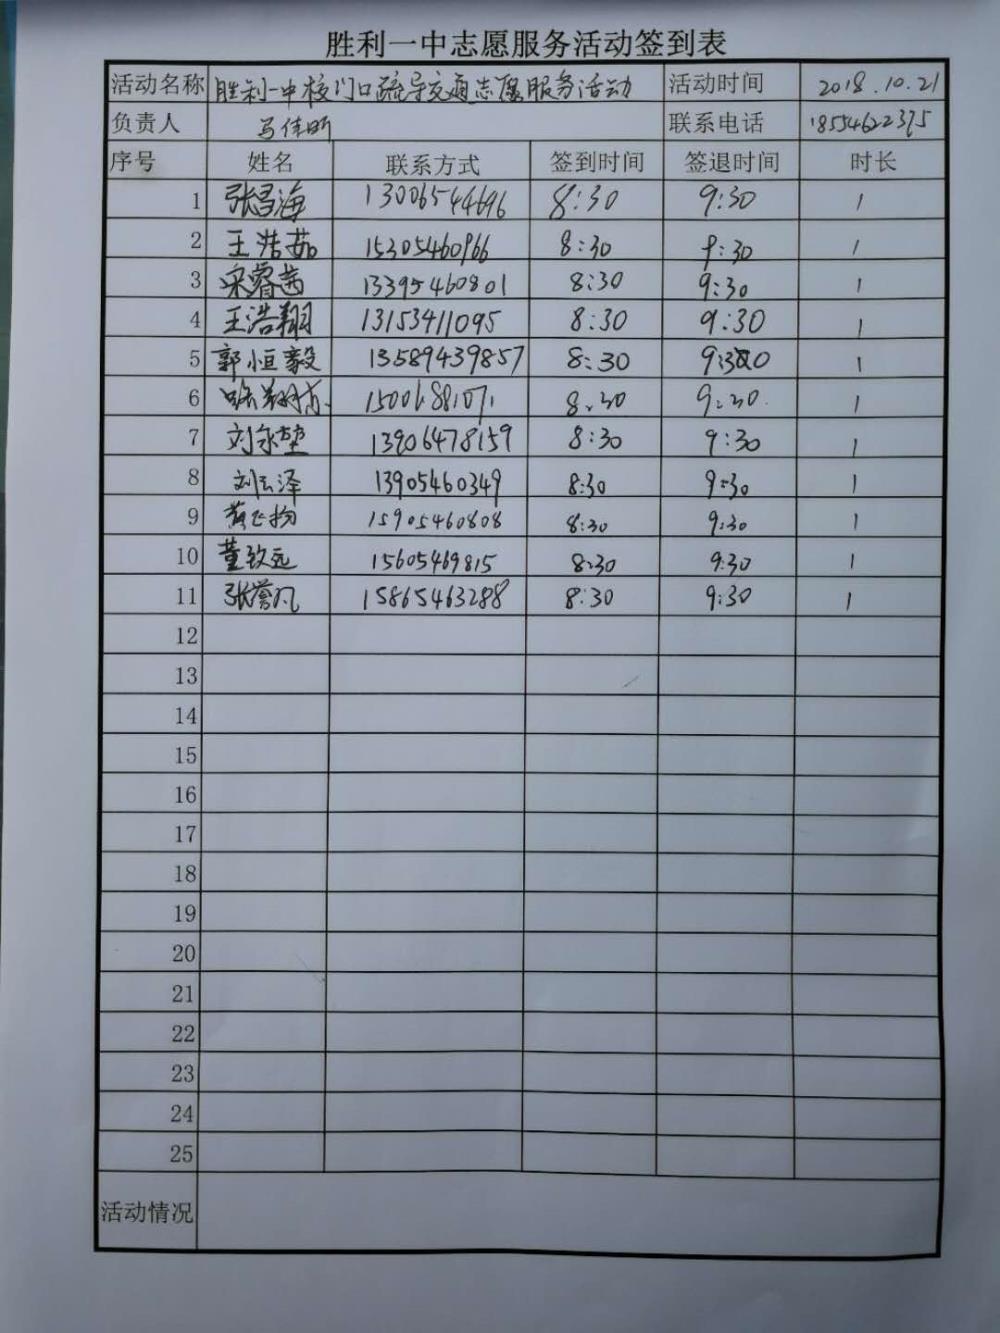 胜利一中志愿服务活动签到表
活动名称 胜利一中校门口疏导交通志愿服务活动 活动时间 2018.10.21
负责人 马佳昕 联系电话 18554622395
序号 姓名 联系方式 签到时间 签退时间 时长
1 张昌海 13006544696 8:30 9:30 1
2 王浩茹 15305460966 8:30 9:30 1
3 宋睿茜 13395460801 8:30 9:30 1
4 王浩翔 13153411095 8:30 9:30 1
5 郭恒毅 13589439857 8:30 9:30 1
6 15006881071 8:30 9:30 1
7 刘永堃 13906478159 8:30 9:30 1
8 刘云泽 13905460349 8:30 9:30 1
9 黄飞扬 15905460808 8:30 9:30 1
10 董致远 15605469815 8:30 9:30 1
11 张誉凡 15865463288 8:30 9:30 1
12
13
14
15
16
17
18
19
20
21
22
23
24
25
活动情况